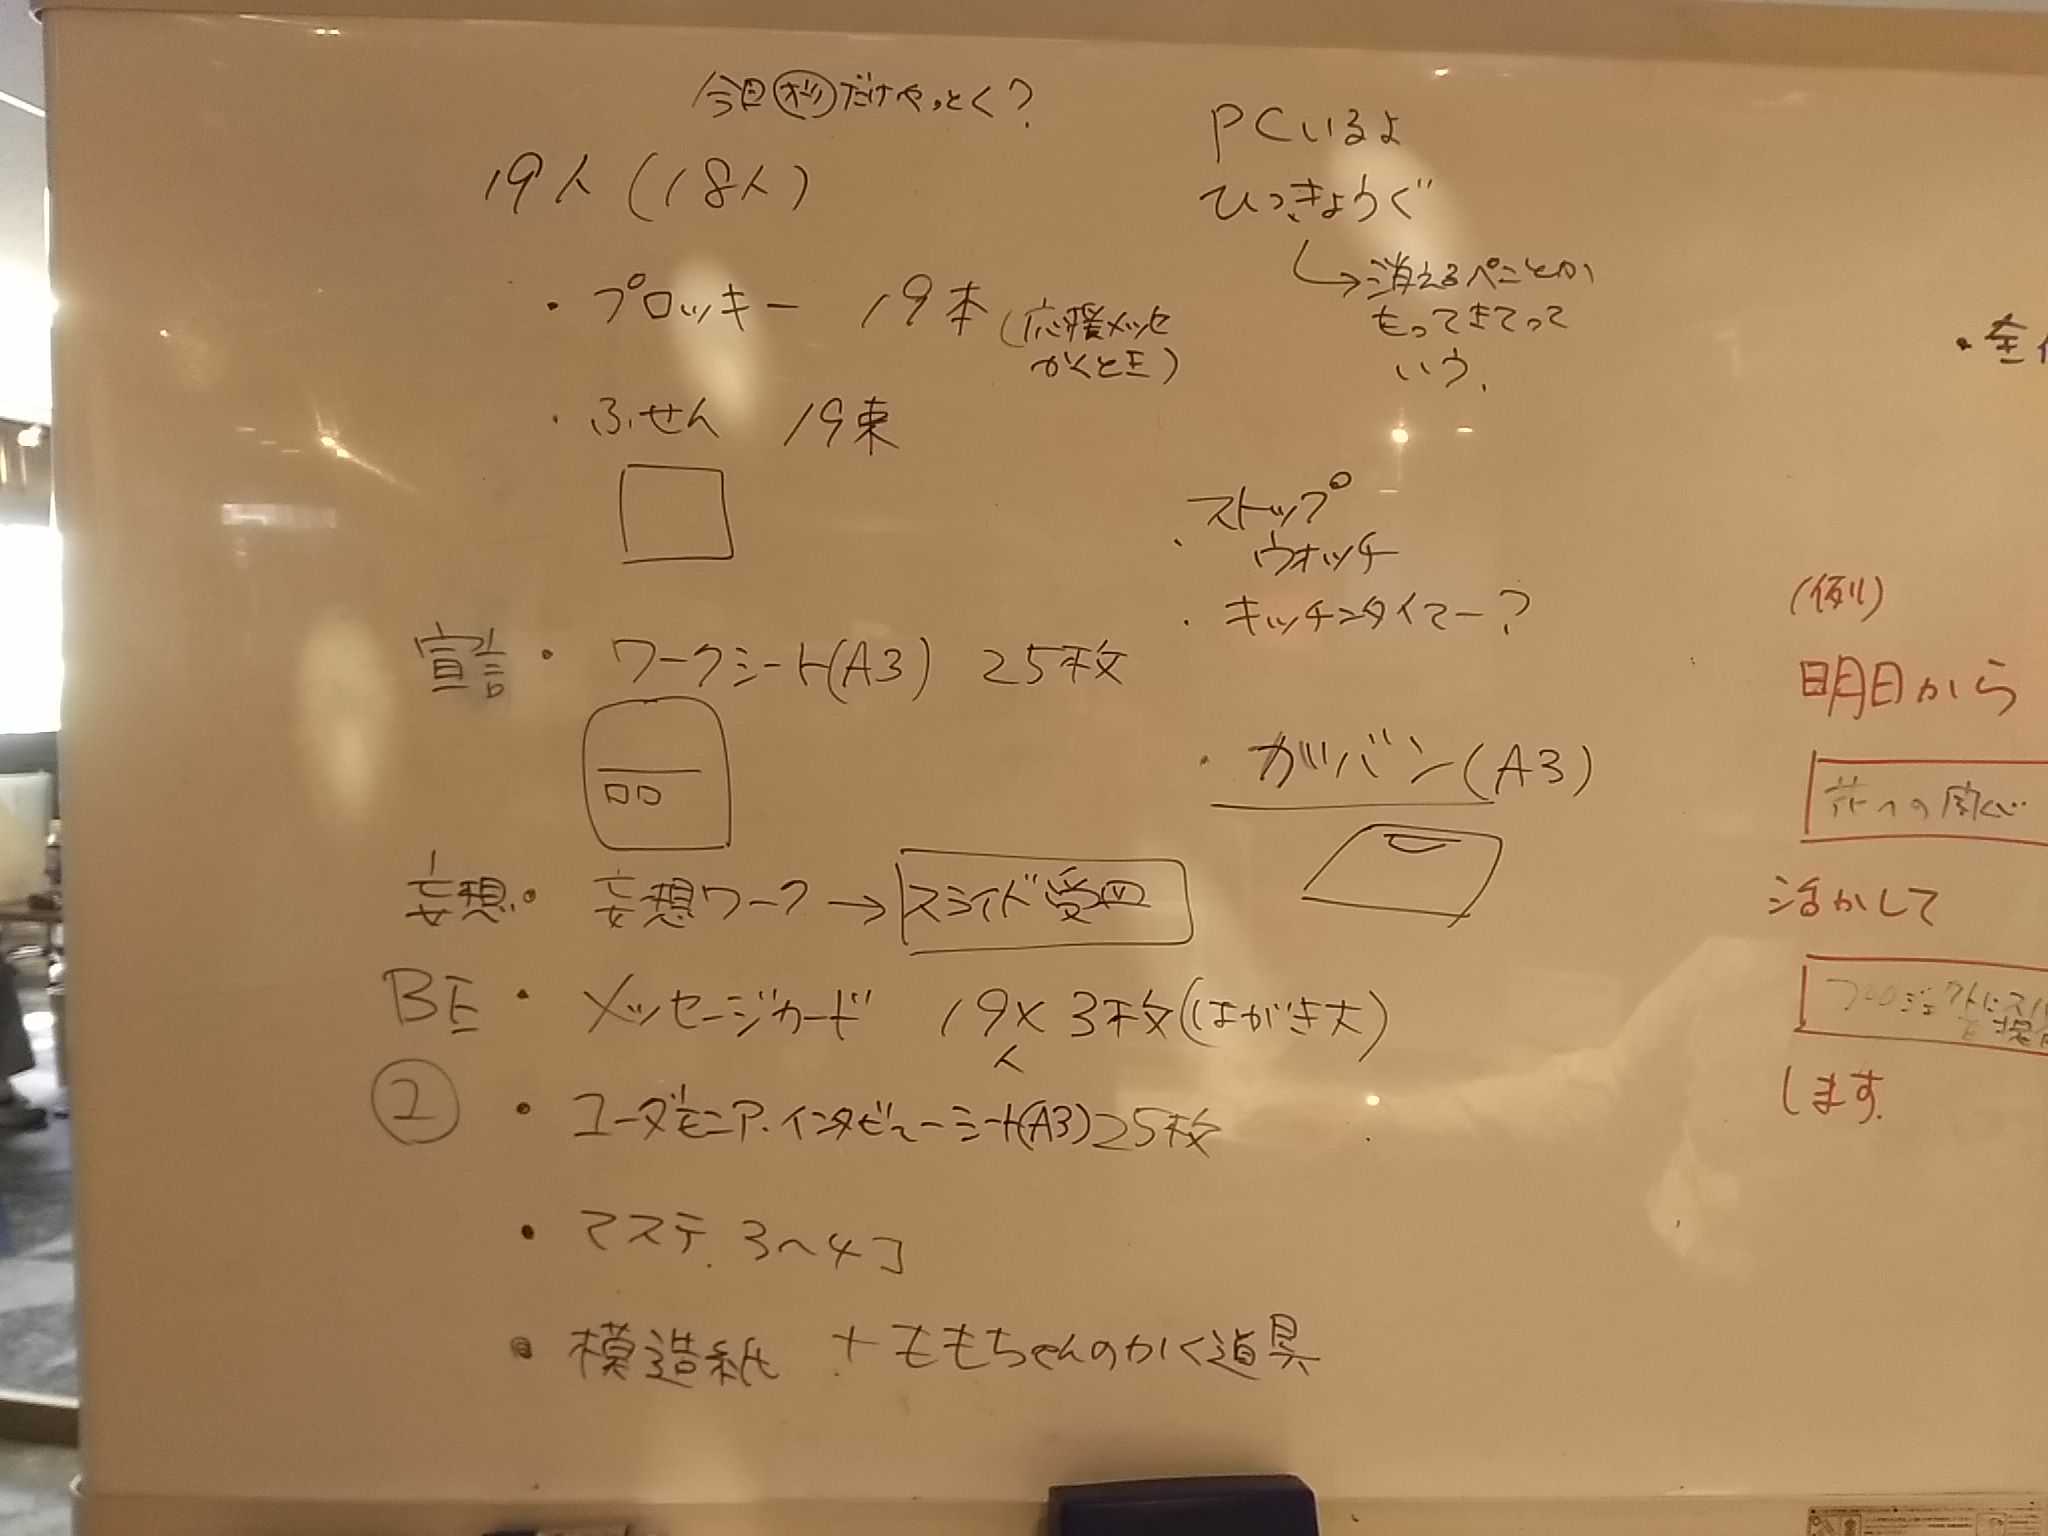 今日だけやっとく？
19人(18人)
・プロッキー 19本(応援メッセ
かくとき)
・ふせん 19束
宣言・ワークシート(A3) 25枚
妄想・妄想ワーク→スライド受皿
BE・メッセージカード 19×3枚(はがき大)
人
②・ユーダモニア・インタビューシート(A3)25枚
・マステ 3〜4コ
・模造紙 + ももちゃんのかく道具
PCいるよ
ひっきょうぐ
→消えるぺことか
もってきてって
いう.
・ストップ
ウォッチ
・キッチンタイマー？
・がバン(A3)
(例)
明日から
への関心
活かして
します.